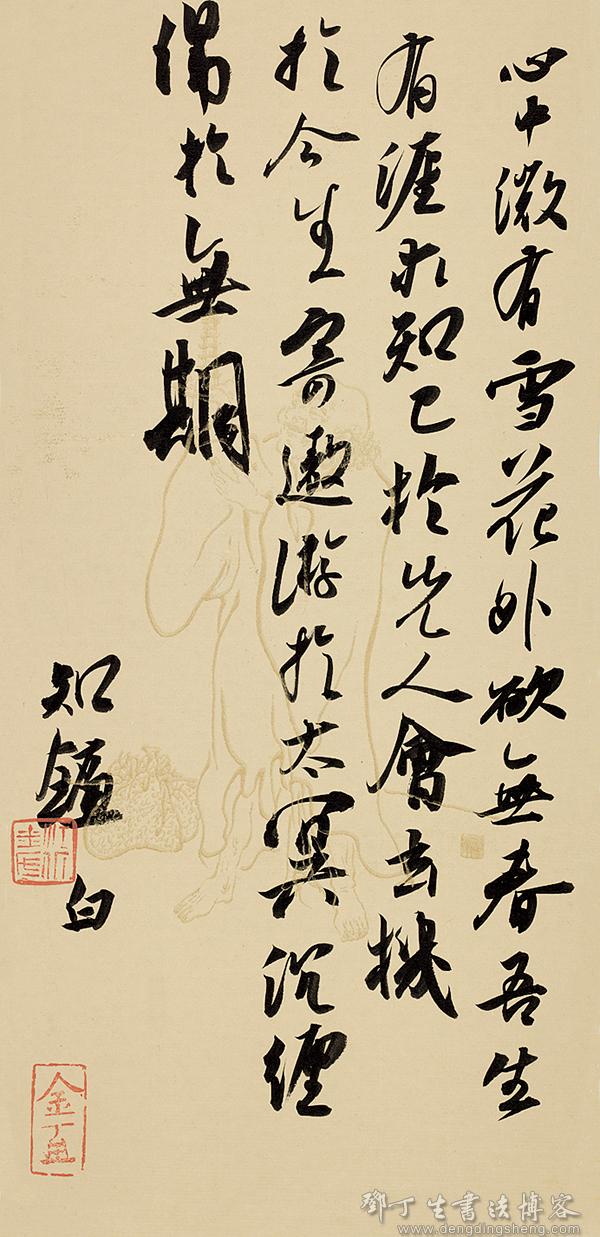 心中微有雪花外欲無春吾生
有涯求知己於先人會玄機
於今生寄遨游於太冥沉纏
傷於無期
知
白
鄧丁生書法博客
www.dengdingsheng.com